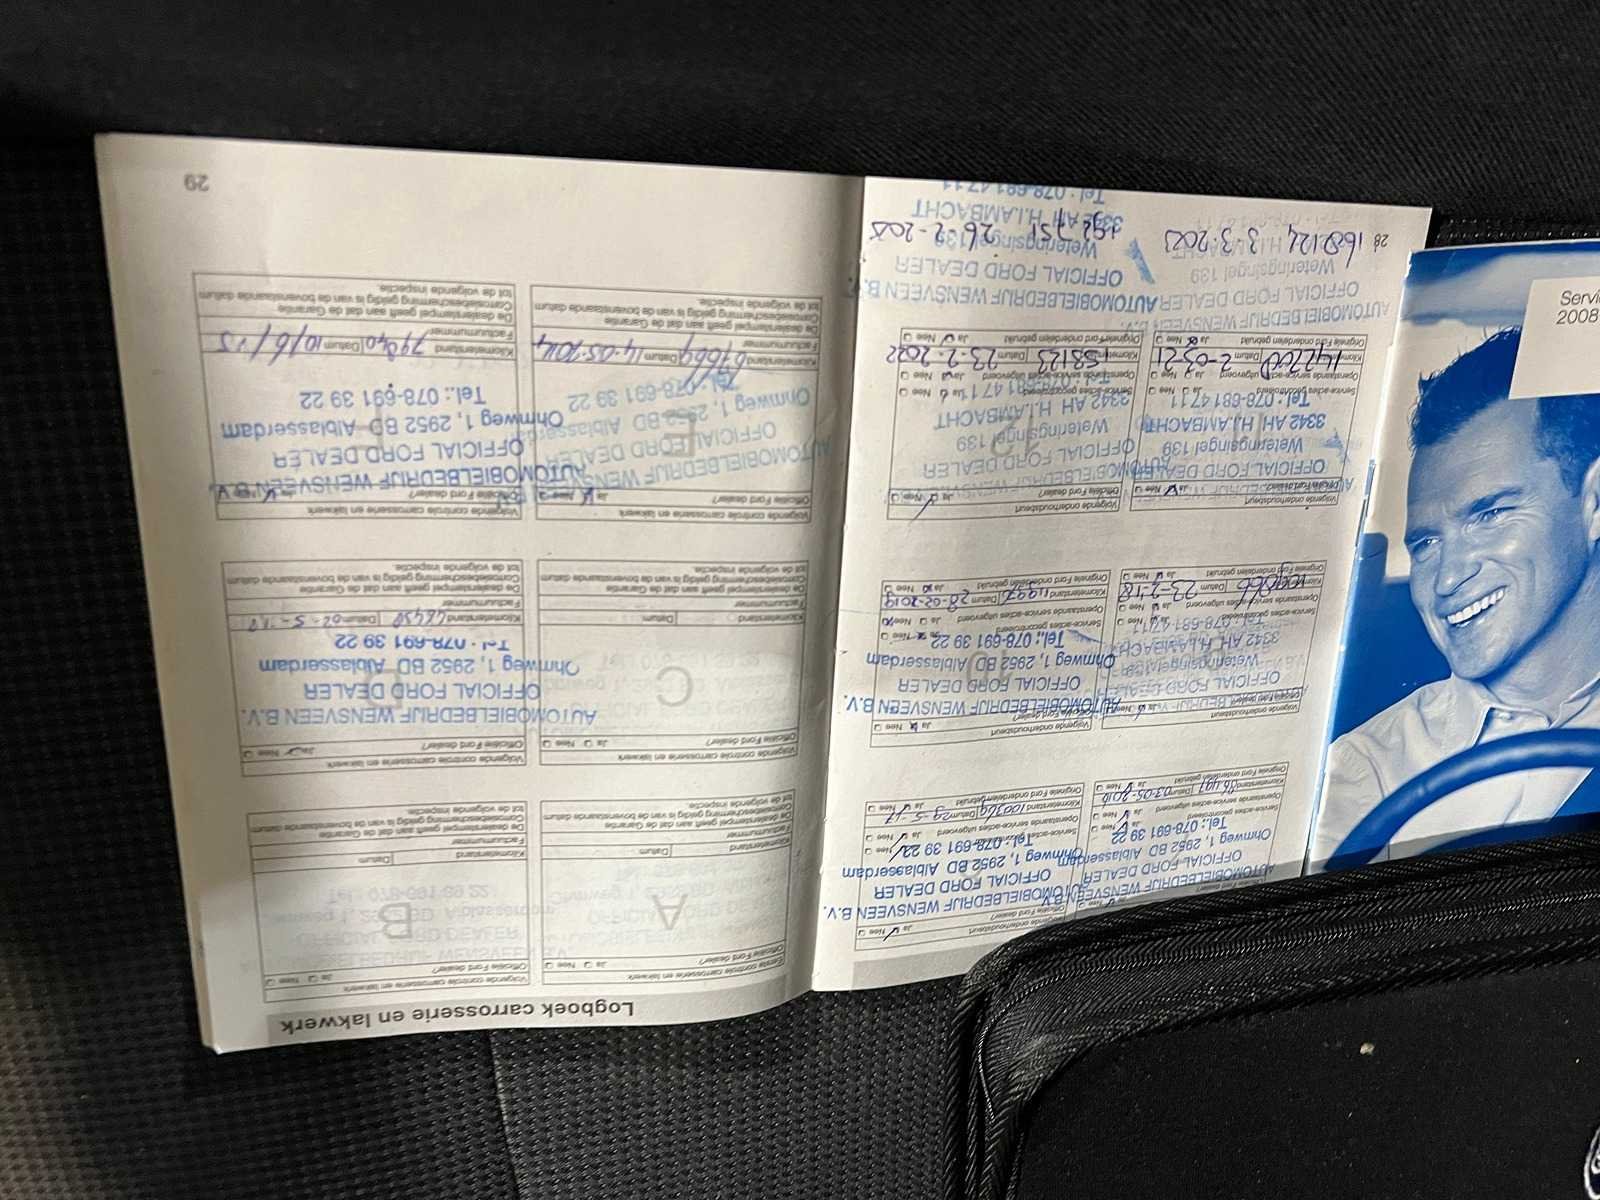 Servi
2008
Officiële Ford dealer?
AUTOMOBIELBEDRIJF WENSVEEN B.V.
OFFICIAL FORD DEALER
Ohmweg 1, 2952 BD Alblasserdam
Tel.: 078-691 39 22
Service-acties gecontroleerd
Openstaande service-acties uitgevoerd
Ja Nee
Kilometerstand Datum 03-05-2016
Originele Ford onderdelen gebruikt
Volgende onderhoudsbeurt
Officiële Ford dealer? Ja Nee
AUTOMOBIELBEDRIJF WENSVEEN B.V.
OFFICIAL FORD DEALER
Ohmweg 1, 2952 BD Alblasserdam
Tel.: 078-691 39 22
Openstaande service-acties uitgevoerd
Kilometerstand 100369 Datum 29-5-17
Originele Ford onderdelen gebruikt Ja Nee
Volgende onderhoudsbeurt
Officiële Ford dealer? Ja Nee
OFFICIAL FORD DEALER
Weteringsingel 139
3342 AH H.I.AMBACHT
Service-acties gecontroleerd Ja Nee
Openstaande service-acties uitgevoerd Ja Nee
Kilometerstand 109866 Datum 23-2-18
Originele Ford onderdelen gebruikt Ja Nee
Volgende onderhoudsbeurt
Officiële Ford dealer? Ja Nee
AUTOMOBIELBEDRIJF WENSVEEN B.V.
OFFICIAL FORD DEALER
Ohmweg 1, 2952 BD Alblasserdam
10
Tel.: 078-691 39 22
Service-acties gecontroleerd Ja Nee
Openstaande service-acties uitgevoerd Ja Nee
Kilometerstand Datum 28-02-2019
Originele Ford onderdelen gebruikt Ja Nee
Volgende onderhoudsbeurt
Officiële Ford dealer? Ja Nee
OFFICIAL FORD DEALER
Weteringsingel 139
3342 AH H.I.AMBACHT
Tel.: 078-681 47 11
Service-acties gecontroleerd Ja Nee
Openstaande service-acties uitgevoerd Ja Nee
Kilometerstand 142700 Datum 2-03-21
Originele Ford onderdelen gebruikt Ja Nee
Volgende onderhoudsbeurt
Officiële Ford dealer? Ja Nee
OFFICIAL FORD DEALER
12
Weteringsingel 139
3342 AH H.I.AMBACHT
Tel.: 078-681 47 11
Service-acties gecontroleerd Ja Nee
Openstaande service-acties uitgevoerd Ja Nee
Kilometerstand 158123 Datum 23-2-2022
Originele Ford onderdelen gebruikt Ja Nee
AUTOMOBIELBEDRIJF WENSVEEN B.V.
OFFICIAL FORD DEALER
Weteringsingel 139
28 168124 3.3.2023
AUTOMOBIELBEDRIJF WENSVEEN B.V.
OFFICIAL FORD DEALER
Weteringsingel 139
192751
3342 AH H.I.AMBACHT
Tel.: 078-681 47 11
Logboek carrosserie en lakwerk
Eerste controle carrosserie en lakwerk
Officiële Ford dealer? Ja Nee
A
Kilometerstand Datum
Factuurnummer
De dealerstempel geeft aan dat de Garantie
Carrosseriebescherming geldig is van de bovenstaande datum
tot de volgende inspectie.
Volgende controle carrosserie en lakwerk
Officiële Ford dealer? Ja Nee
B
Kilometerstand Datum
Factuurnummer
De dealerstempel geeft aan dat de Garantie
Carrosseriebescherming geldig is van de bovenstaande datum
tot de volgende inspectie.
Volgende controle carrosserie en lakwerk
Officiële Ford dealer? Ja Nee
C
Kilometerstand Datum
Factuurnummer
De dealerstempel geeft aan dat de Garantie
Carrosseriebescherming geldig is van de bovenstaande datum
tot de volgende inspectie.
Volgende controle carrosserie en lakwerk
Officiële Ford dealer? Ja Nee
AUTOMOBIELBEDRIJF WENSVEEN B.V.
OFFICIAL FORD DEALER
D
Ohmweg 1, 2952 BD Alblasserdam
Tel.: 078-691 39 22
Kilometerstand Datum
Factuurnummer
De dealerstempel geeft aan dat de Garantie
Carrosseriebescherming geldig is van de bovenstaande datum
tot de volgende inspectie.
Volgende controle carrosserie en lakwerk
Officiële Ford dealer? Ja Nee
AUTOMOBIELBEDRIJF WENSVEEN B.V.
OFFICIAL FORD DEALER
E
Ohmweg 1, 2952 BD Alblasserdam
Tel.: 078-691 39 22
Kilometerstand 67664 Datum 14-05-2014
Factuurnummer
De dealerstempel geeft aan dat de Garantie
Carrosseriebescherming geldig is van de bovenstaande datum
tot de volgende inspectie.
Volgende controle carrosserie en lakwerk
Officiële Ford dealer? Ja Nee
AUTOMOBIELBEDRIJF WENSVEEN B.V.
OFFICIAL FORD DEALER
F
Ohmweg 1, 2952 BD Alblasserdam
Tel.: 078-691 39 22
Kilometerstand Datum 10/6/15
Factuurnummer
De dealerstempel geeft aan dat de Garantie
Carrosseriebescherming geldig is van de bovenstaande datum
tot de volgende inspectie.
29